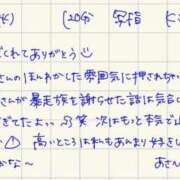 K) (20分 写指 K
ぞくれてありがとう☺
さんのほんわかした雰囲気に押されちゃ
さんが暴走族を謝らせた話は気合
ぎてたよっ笑 次はもっと本気で
! 高いところは私もあんまり好きじ
かな〜 あさん